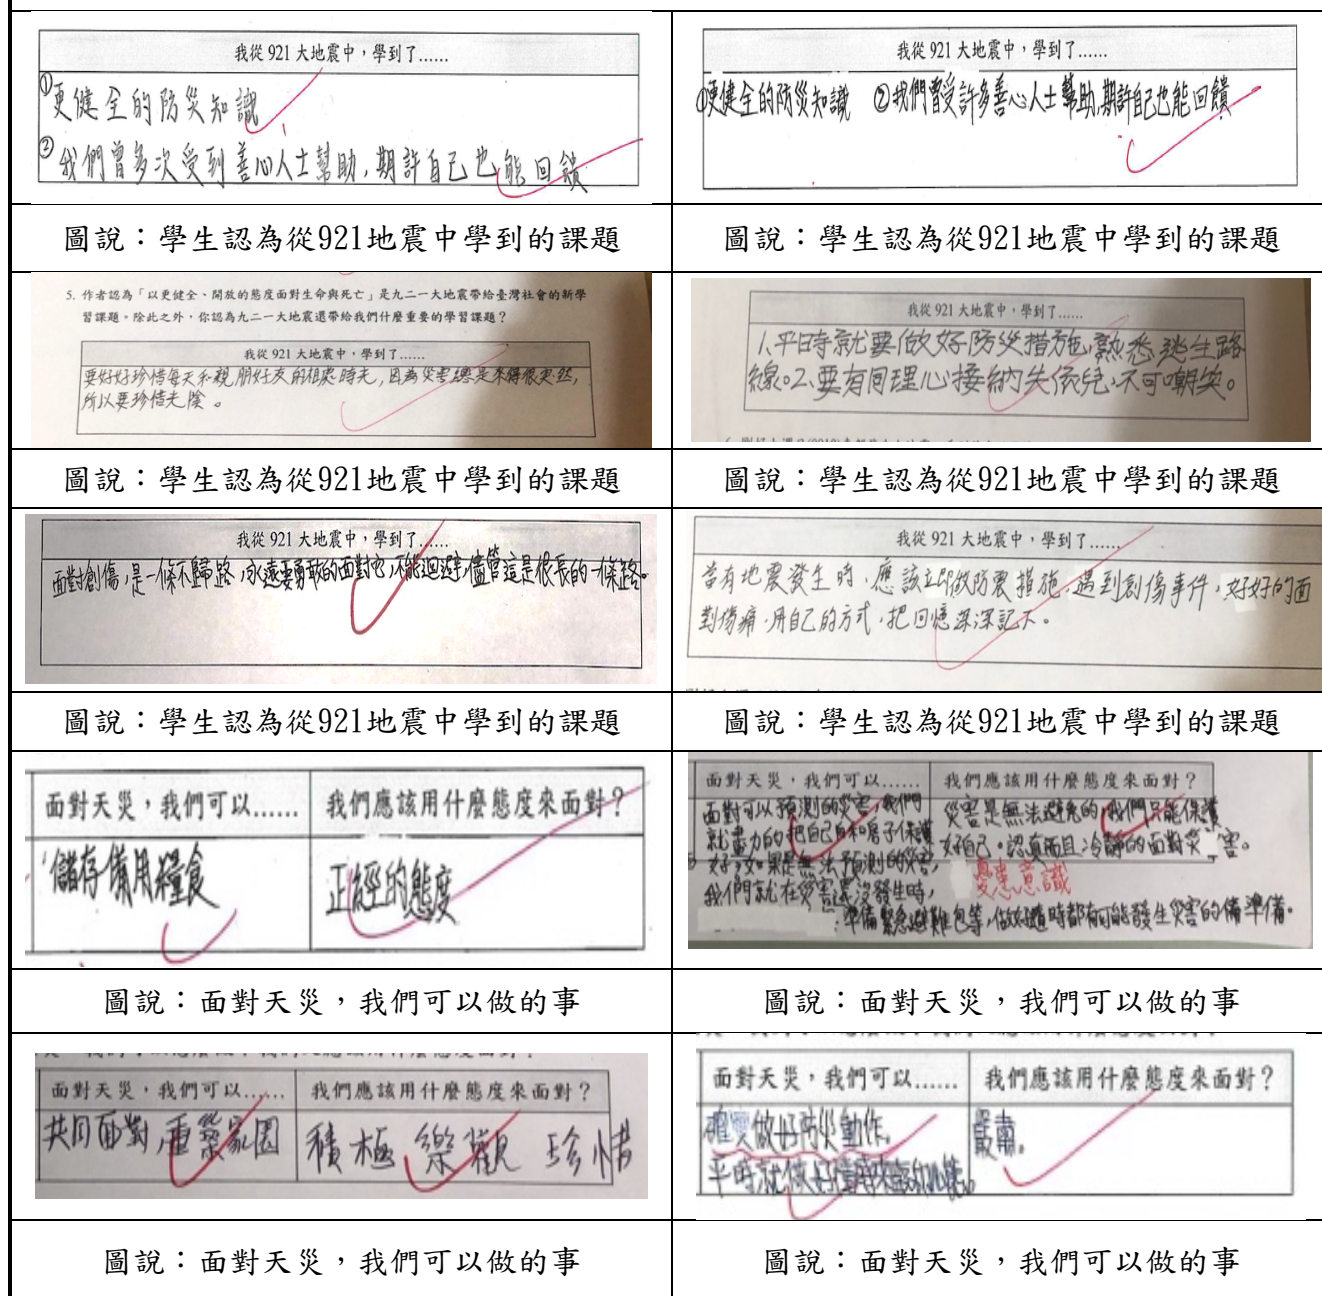 我從 921 大地震中，學到了......
①更健全的防災知識
②我們曾多次受到善心人士幫助，期許自己也能回饋
我從 921 大地震中，學到了......
①更健全的防災知識 ②我們曾受許多善心人士幫助，期許自己也能回饋
圖說：學生認為從921地震中學到的課題
圖說：學生認為從921地震中學到的課題
5. 作者認為「以更健全、開放的態度面對生命與死亡」是九二一大地震帶給臺灣社會的新學
習課題。除此之外，你認為九二一大地震還帶給我們什麼重要的學習課題？
我從 921 大地震中，學到了......
要好好珍惜每天和親朋好友的相處時光，因為災害總是來得很突然，
所以要珍惜光陰。
我從 921 大地震中，學到了......
1.平時就要做好防災措施，熟悉逃生路
線。2.要有同理心接納失依兒，不可嘲笑。
圖說：學生認為從921地震中學到的課題
圖說：學生認為從921地震中學到的課題
我從 921 大地震中，學到了......
面對創傷，是一條不歸路，永遠要勇敢的面對它，不能迴避，儘管這是很長的一條路。
我從 921 大地震中，學到了......
當有地震發生時，應該立即做防震措施，遇到創傷事件，好好的面
對傷痛，用自己的方式，把回憶深深記下。
圖說：學生認為從921地震中學到的課題
圖說：學生認為從921地震中學到的課題
面對天災，我們可以...... 我們應該用什麼態度來面對？
儲存備用糧食 正經的態度
面對天災，我們可以...... 我們應該用什麼態度來面對？
面對可以預測的災害，我們 災害是無法避免的，我們只能保護
就盡力的把自己和房子保護 好自己。認真而且冷靜的面對災害。
好，如果是無法預測的災害， 憂患意識
我們就在災害還沒發生時，
準備緊急避難包等，做好隨時都有可能發生災害的備準備。
圖說：面對天災，我們可以做的事
圖說：面對天災，我們可以做的事
面對天災，我們可以...... 我們應該用什麼態度來面對？
共同面對，重築家園 積極 樂觀 珍惜
面對天災，我們可以...... 我們應該用什麼態度來面對？
確實做好防災動作。 嚴肅。
平時就做好
圖說：面對天災，我們可以做的事
圖說：面對天災，我們可以做的事